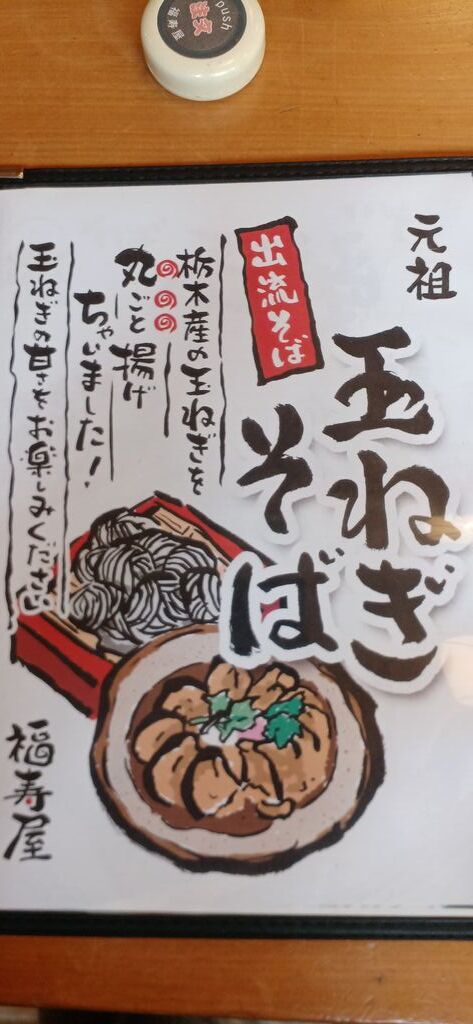 push
注文
福寿屋
元祖
玉ねぎ
そば
出流そば
栃木産の玉ねぎを
丸ごと揚げ
ちゃいました!
玉ねぎの甘さをお楽しみください
福寿屋